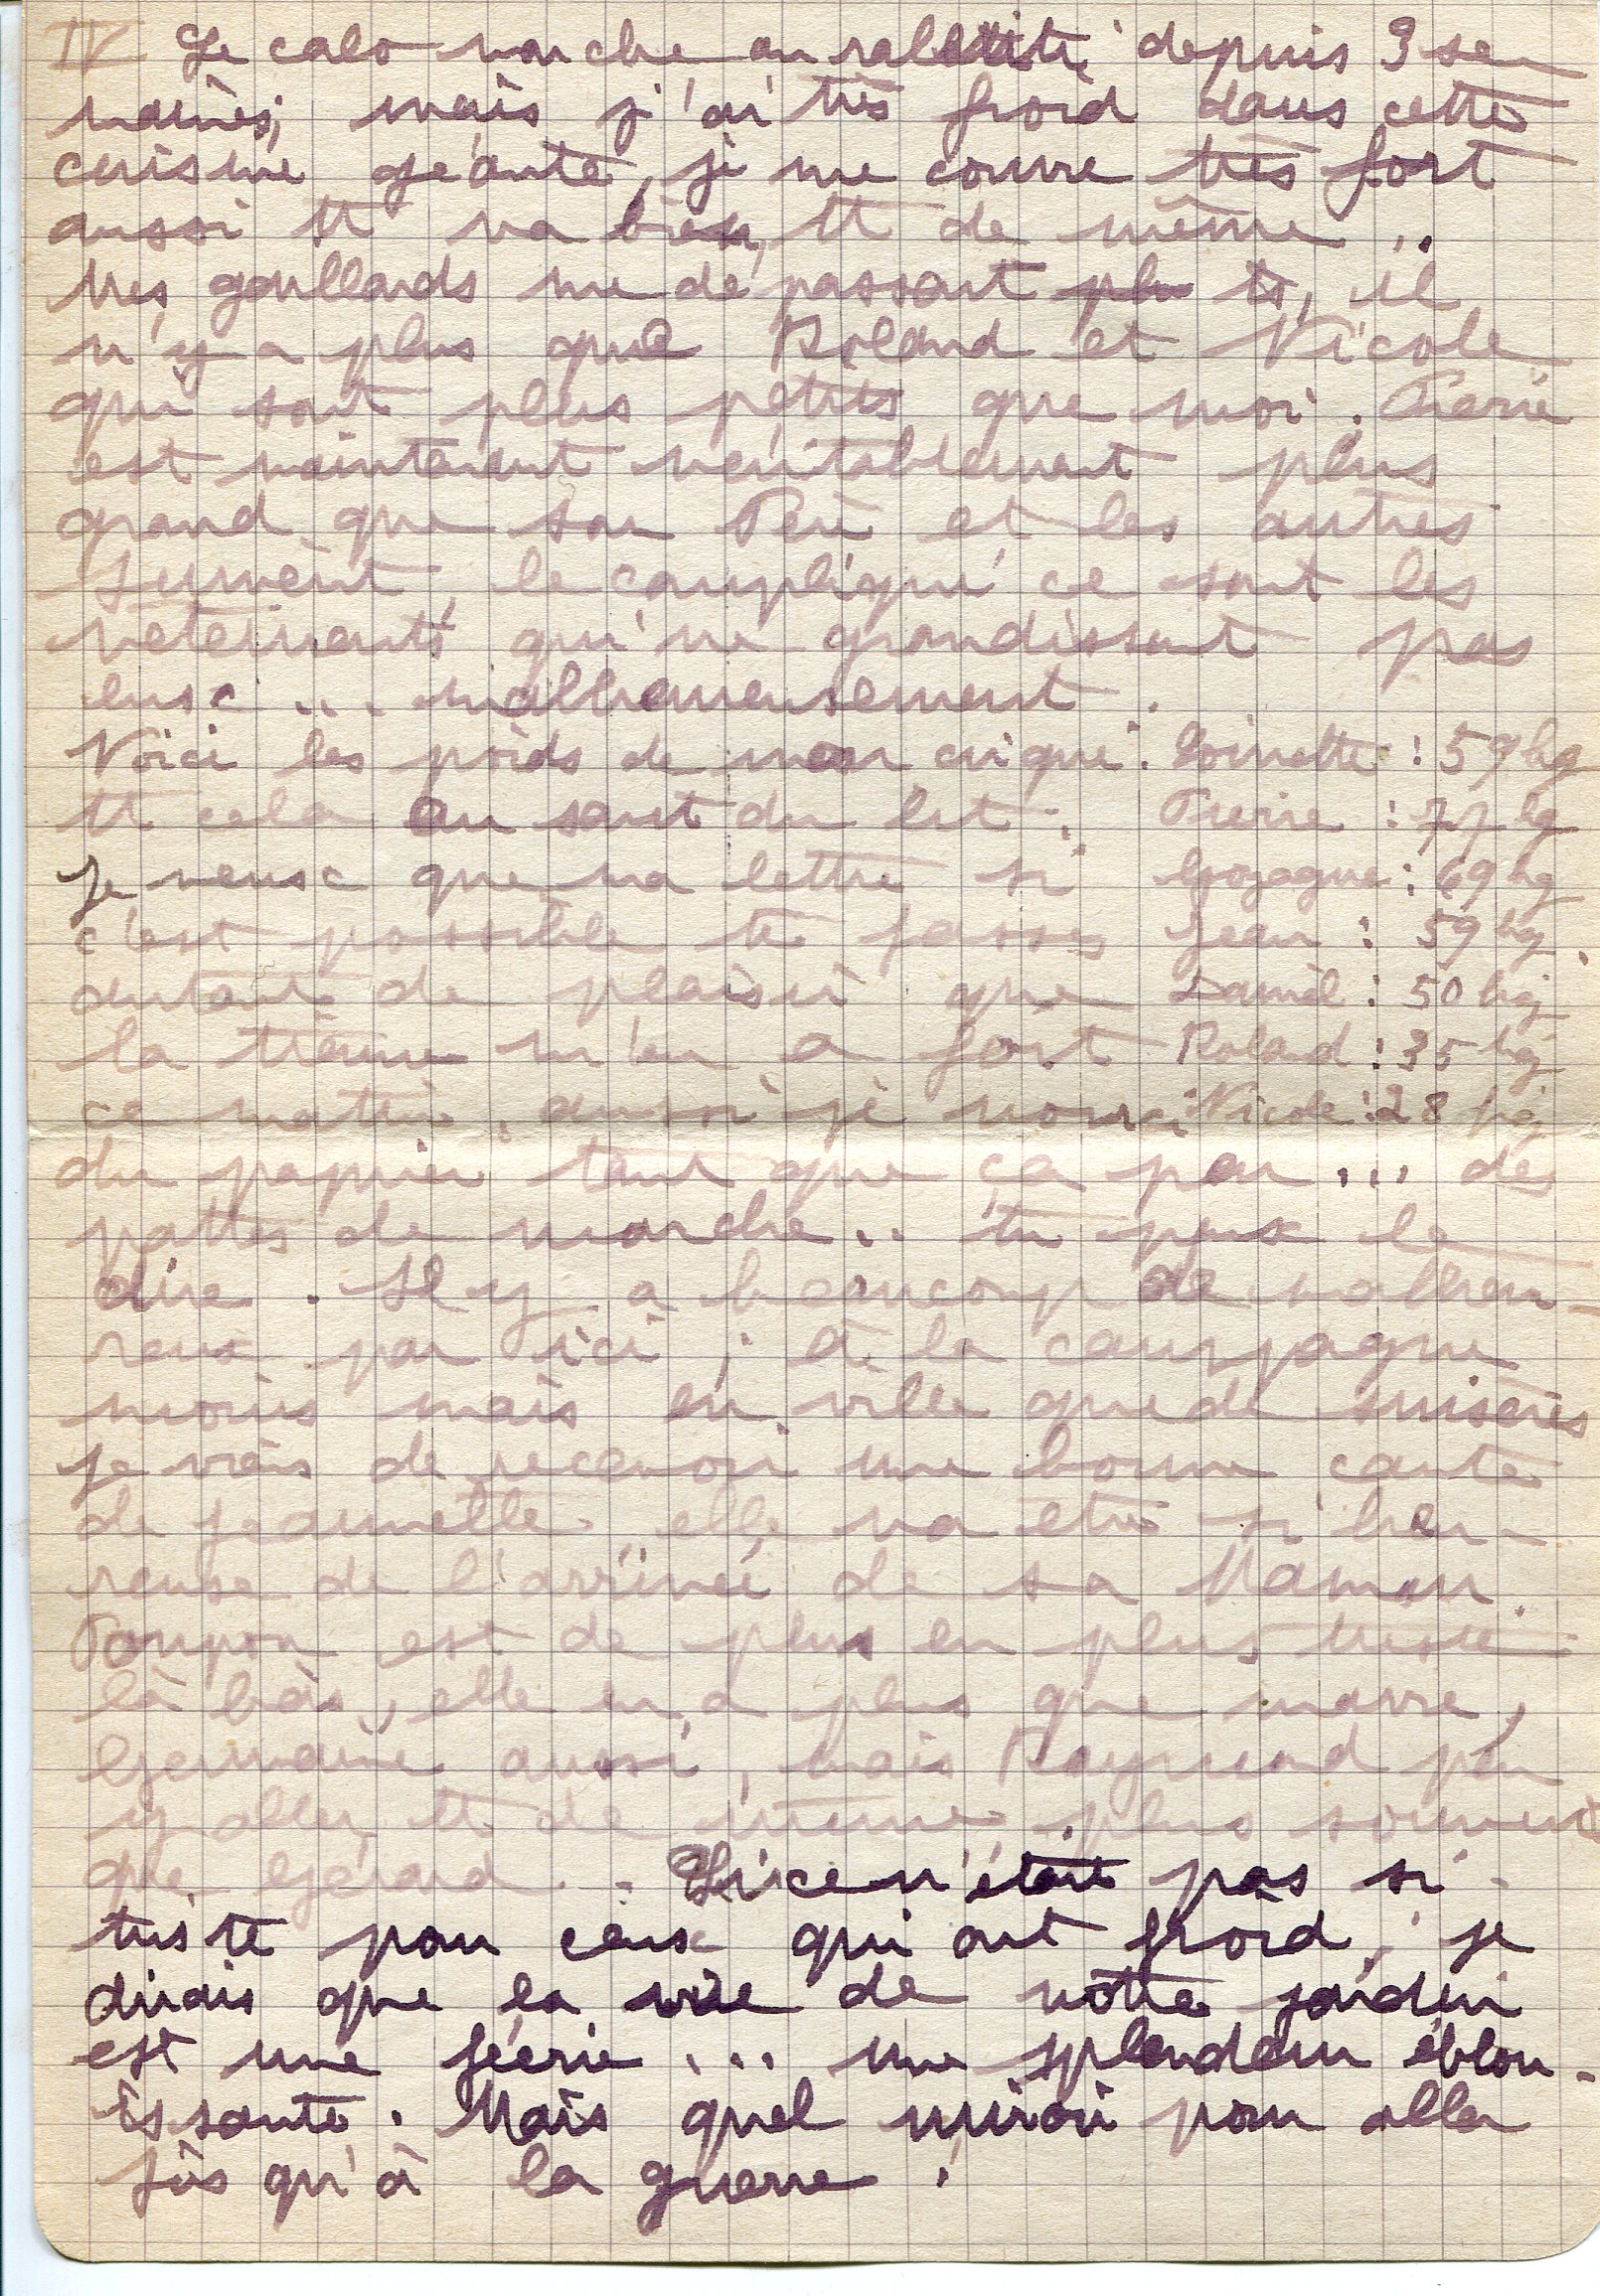 IV Le calo marche au ralenti depuis 3 se-
maines; mais j'ai très froid dans cette
cuisine géante, je me couvre très fort
aussi tt va bien, tt de même ..
Mes gaillards me dépassent ts, il
n'y a plus que Roland et Nicole
qui sont plus petits que moi. Pierre
est maintenant véritablement plus
grand que son Père et les autres
suivent, le compliqué ce sont les
vêtements qui ne grandissent pas
eux ... malheureusement.
Voici les poids de mon cirque. Goinette : 59 kg
tt cela au saut du lit. Pierre : 77 kg
Je veux que ma lettre si Gozague : 69 kg
c'est possible te fasse Jean : 59 kg
autant de plaisir que Daniel : 50 kg
la tienne m'en a fait Rolad : 35 kg
ce matin, aussi je noirci Nicole : 28 kg
du papier tant que ça peu ... des
pattes de mouche.. tu peux le
dire. Il y a beaucoup de malheu-
reux par ici; à la campagne
moins mais en ville que de misères
Je viens de recevoir une bonne carte
de Jeannette, elle va être si heu-
reuse de l'arrivée de sa Maman.
Poupon est de plus en plus triste
là bàs, elle en a plus que marre,
Germaine aussi, mais Raymond peu
y aller tt de même plus souvent
que Gérard .. Si ce n'était pas si
triste pour ceux qui ont froid, je
dirais que la vue de nôtre jardin
est une féerie ... une splendeur éblou-
issante. Mais quel miroir pour aller
jus qu'à la guerre!